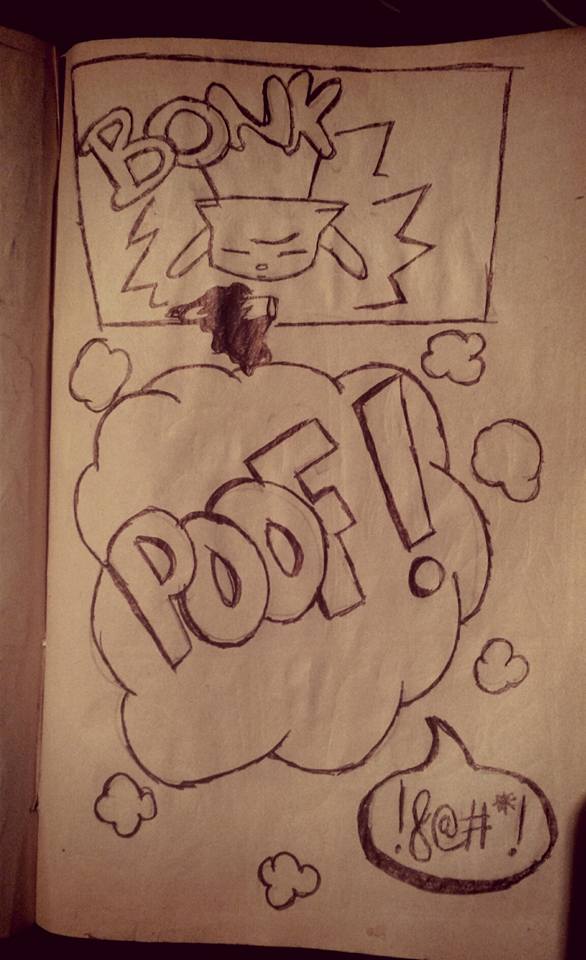 BONK
POOF!
!&@#*!